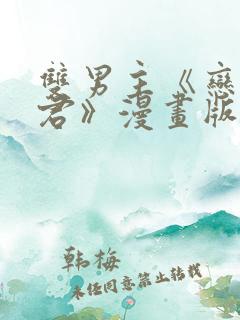 雙男主《戀
君》漫畫版
韩梅
未任同意禁止转载